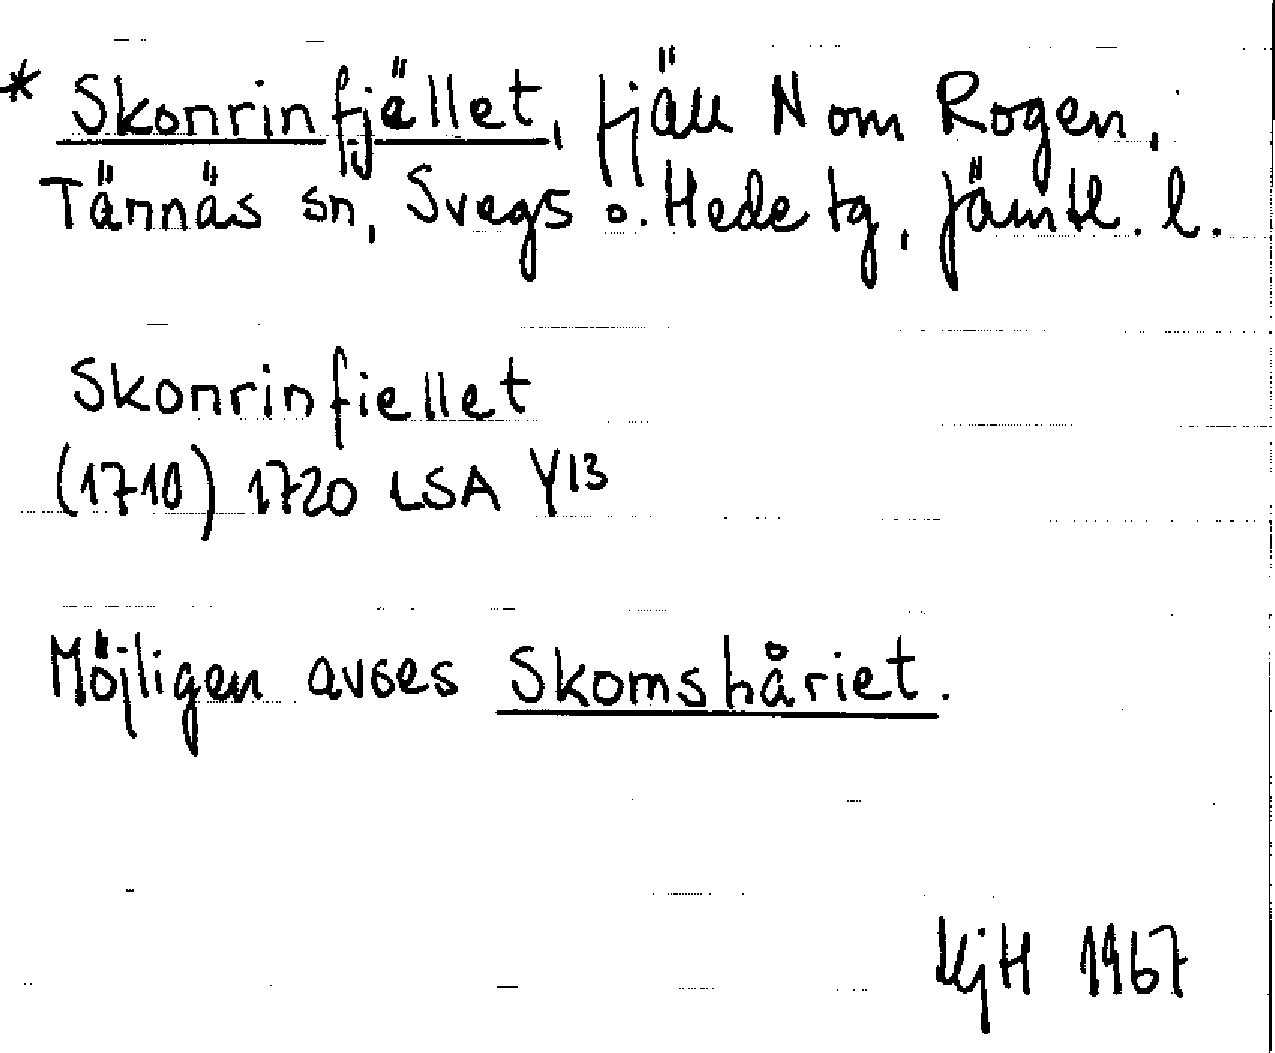 * Skonrinfjället, fjäll N om Rogen,
Tännäs sn, Svegs o. Hede tg, Jämtl. l.
Skonrinfiellet
(1710) 1720 LSA Y13
Möjligen avses Skomshåriet.
KjH 1967